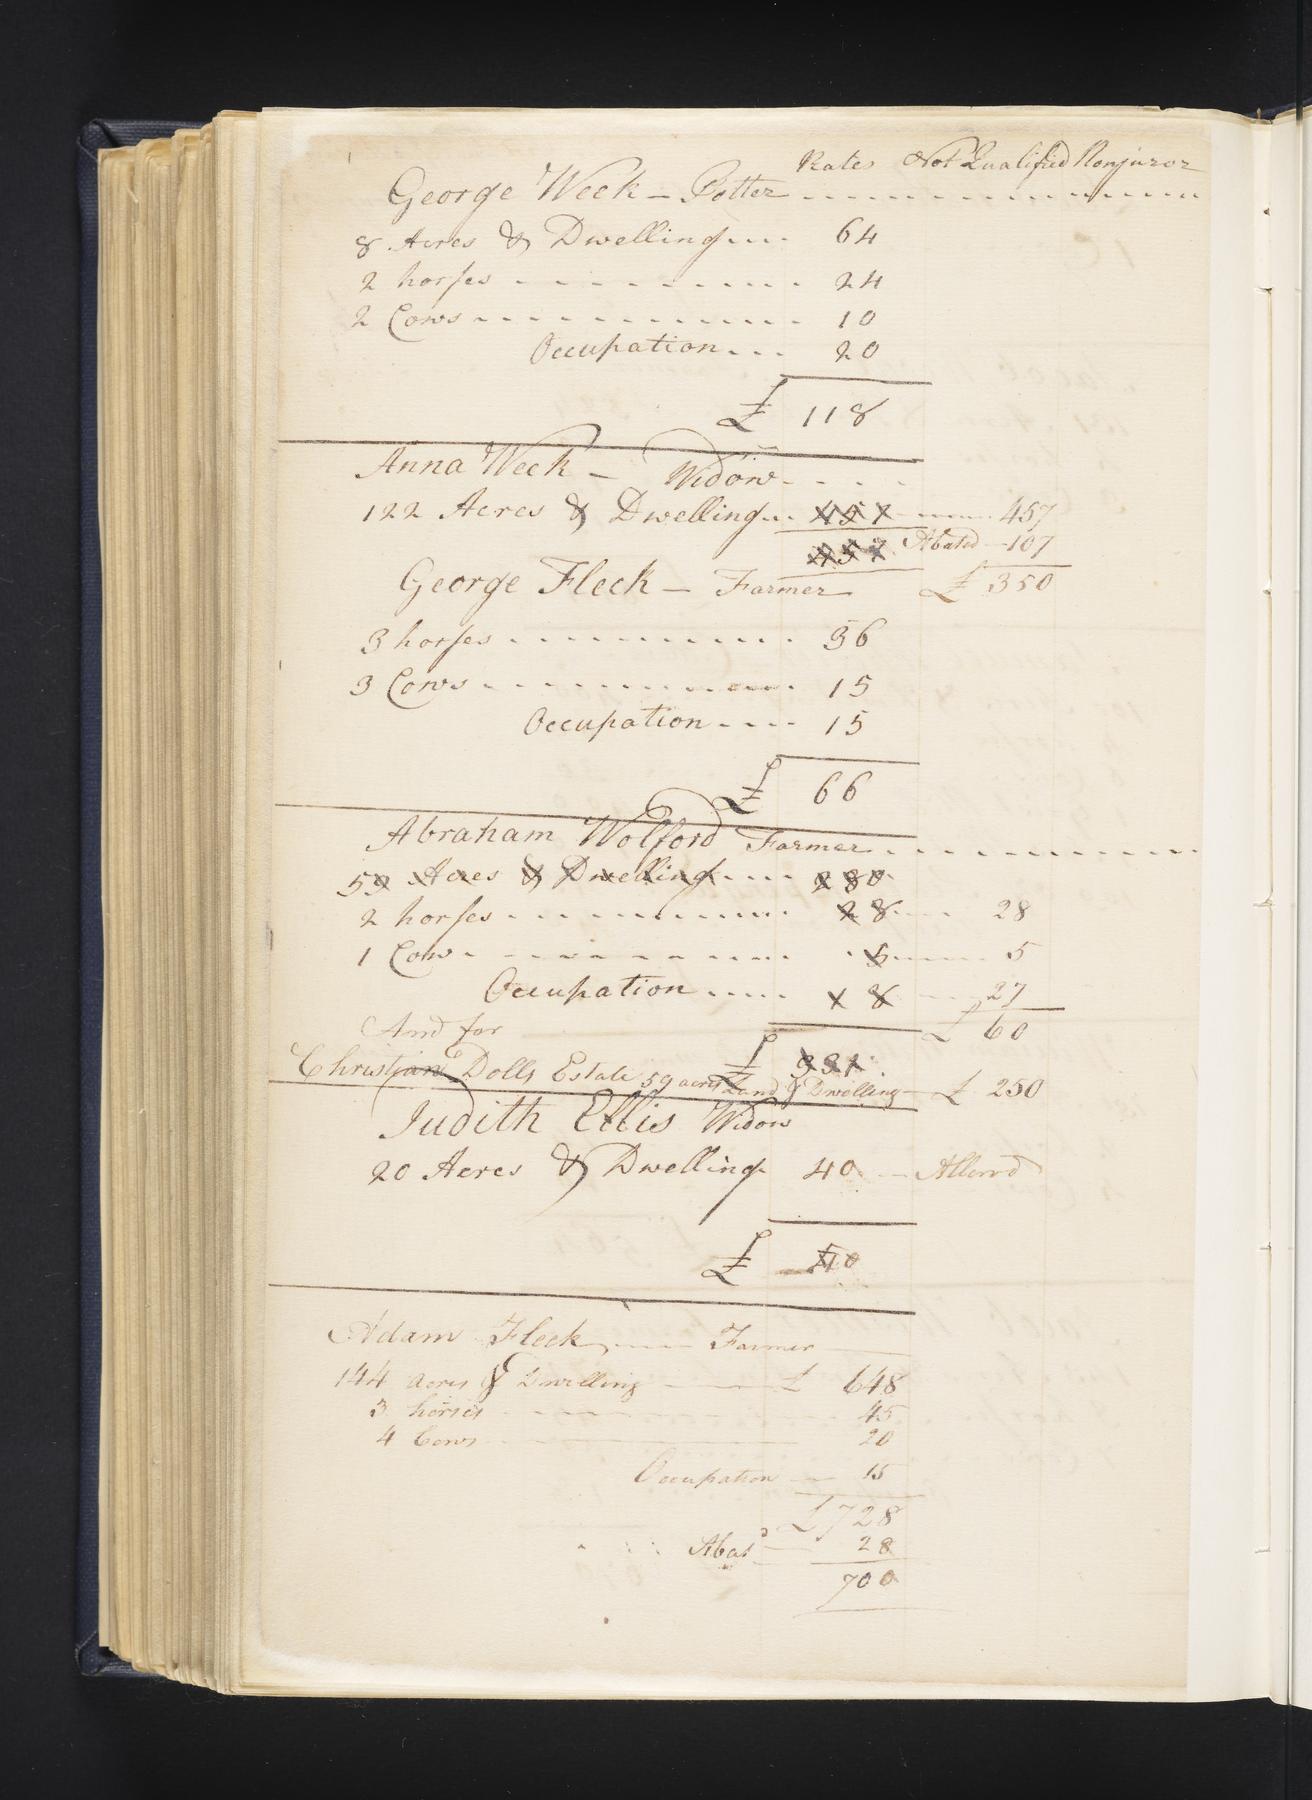 Rates Not Qualified Nonjuror
George Week – Potter
8 Acres & Dwelling 64
2 horses 24
2 Cows 10
Occupation 20
£ 118
Anna Week – Widow
122 Acres & Dwelling 457 457
457 Abated 107
George Fleck – Farmer £ 350
3 horses 36
3 Cows 15
Occupation 15
£ 66
Abraham Wolford Farmer
59 Acres & Dwelling 280
2 horses 28 28
1 Cow 5 5
Occupation 18 27
And for £ 60
£ 331
Christian Dolls Estate 59 acres Land & Dwelling £ 250
Judith Ellis Widow
20 Acres & Dwelling 40 Allowd
£ 40
Adam Fleck Farmer
144 acres & Dwelling £ 648
3 horses 45
4 Cows 20
Occupation 15
£ 728
Abatd 28
700